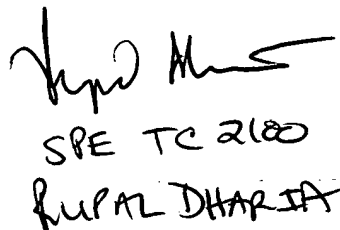 SPE TC 2100
RUPAL DHARIA